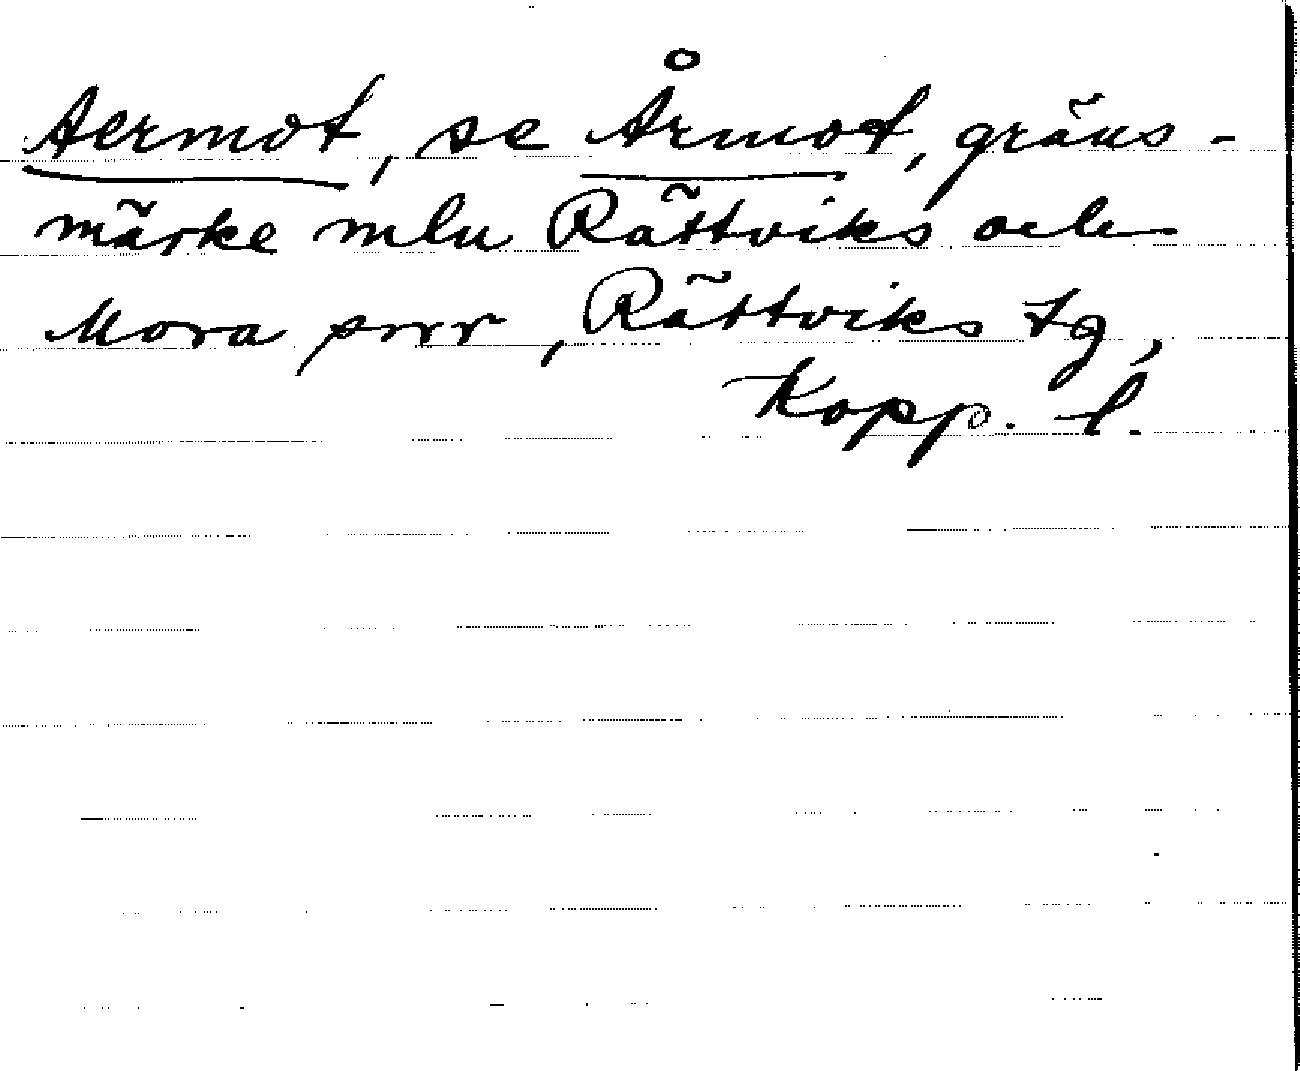 Aermot, se Årmot, gräns-
märke mlu Rättviks och
Mora srr, Rättviks tg,
Kopp. l.